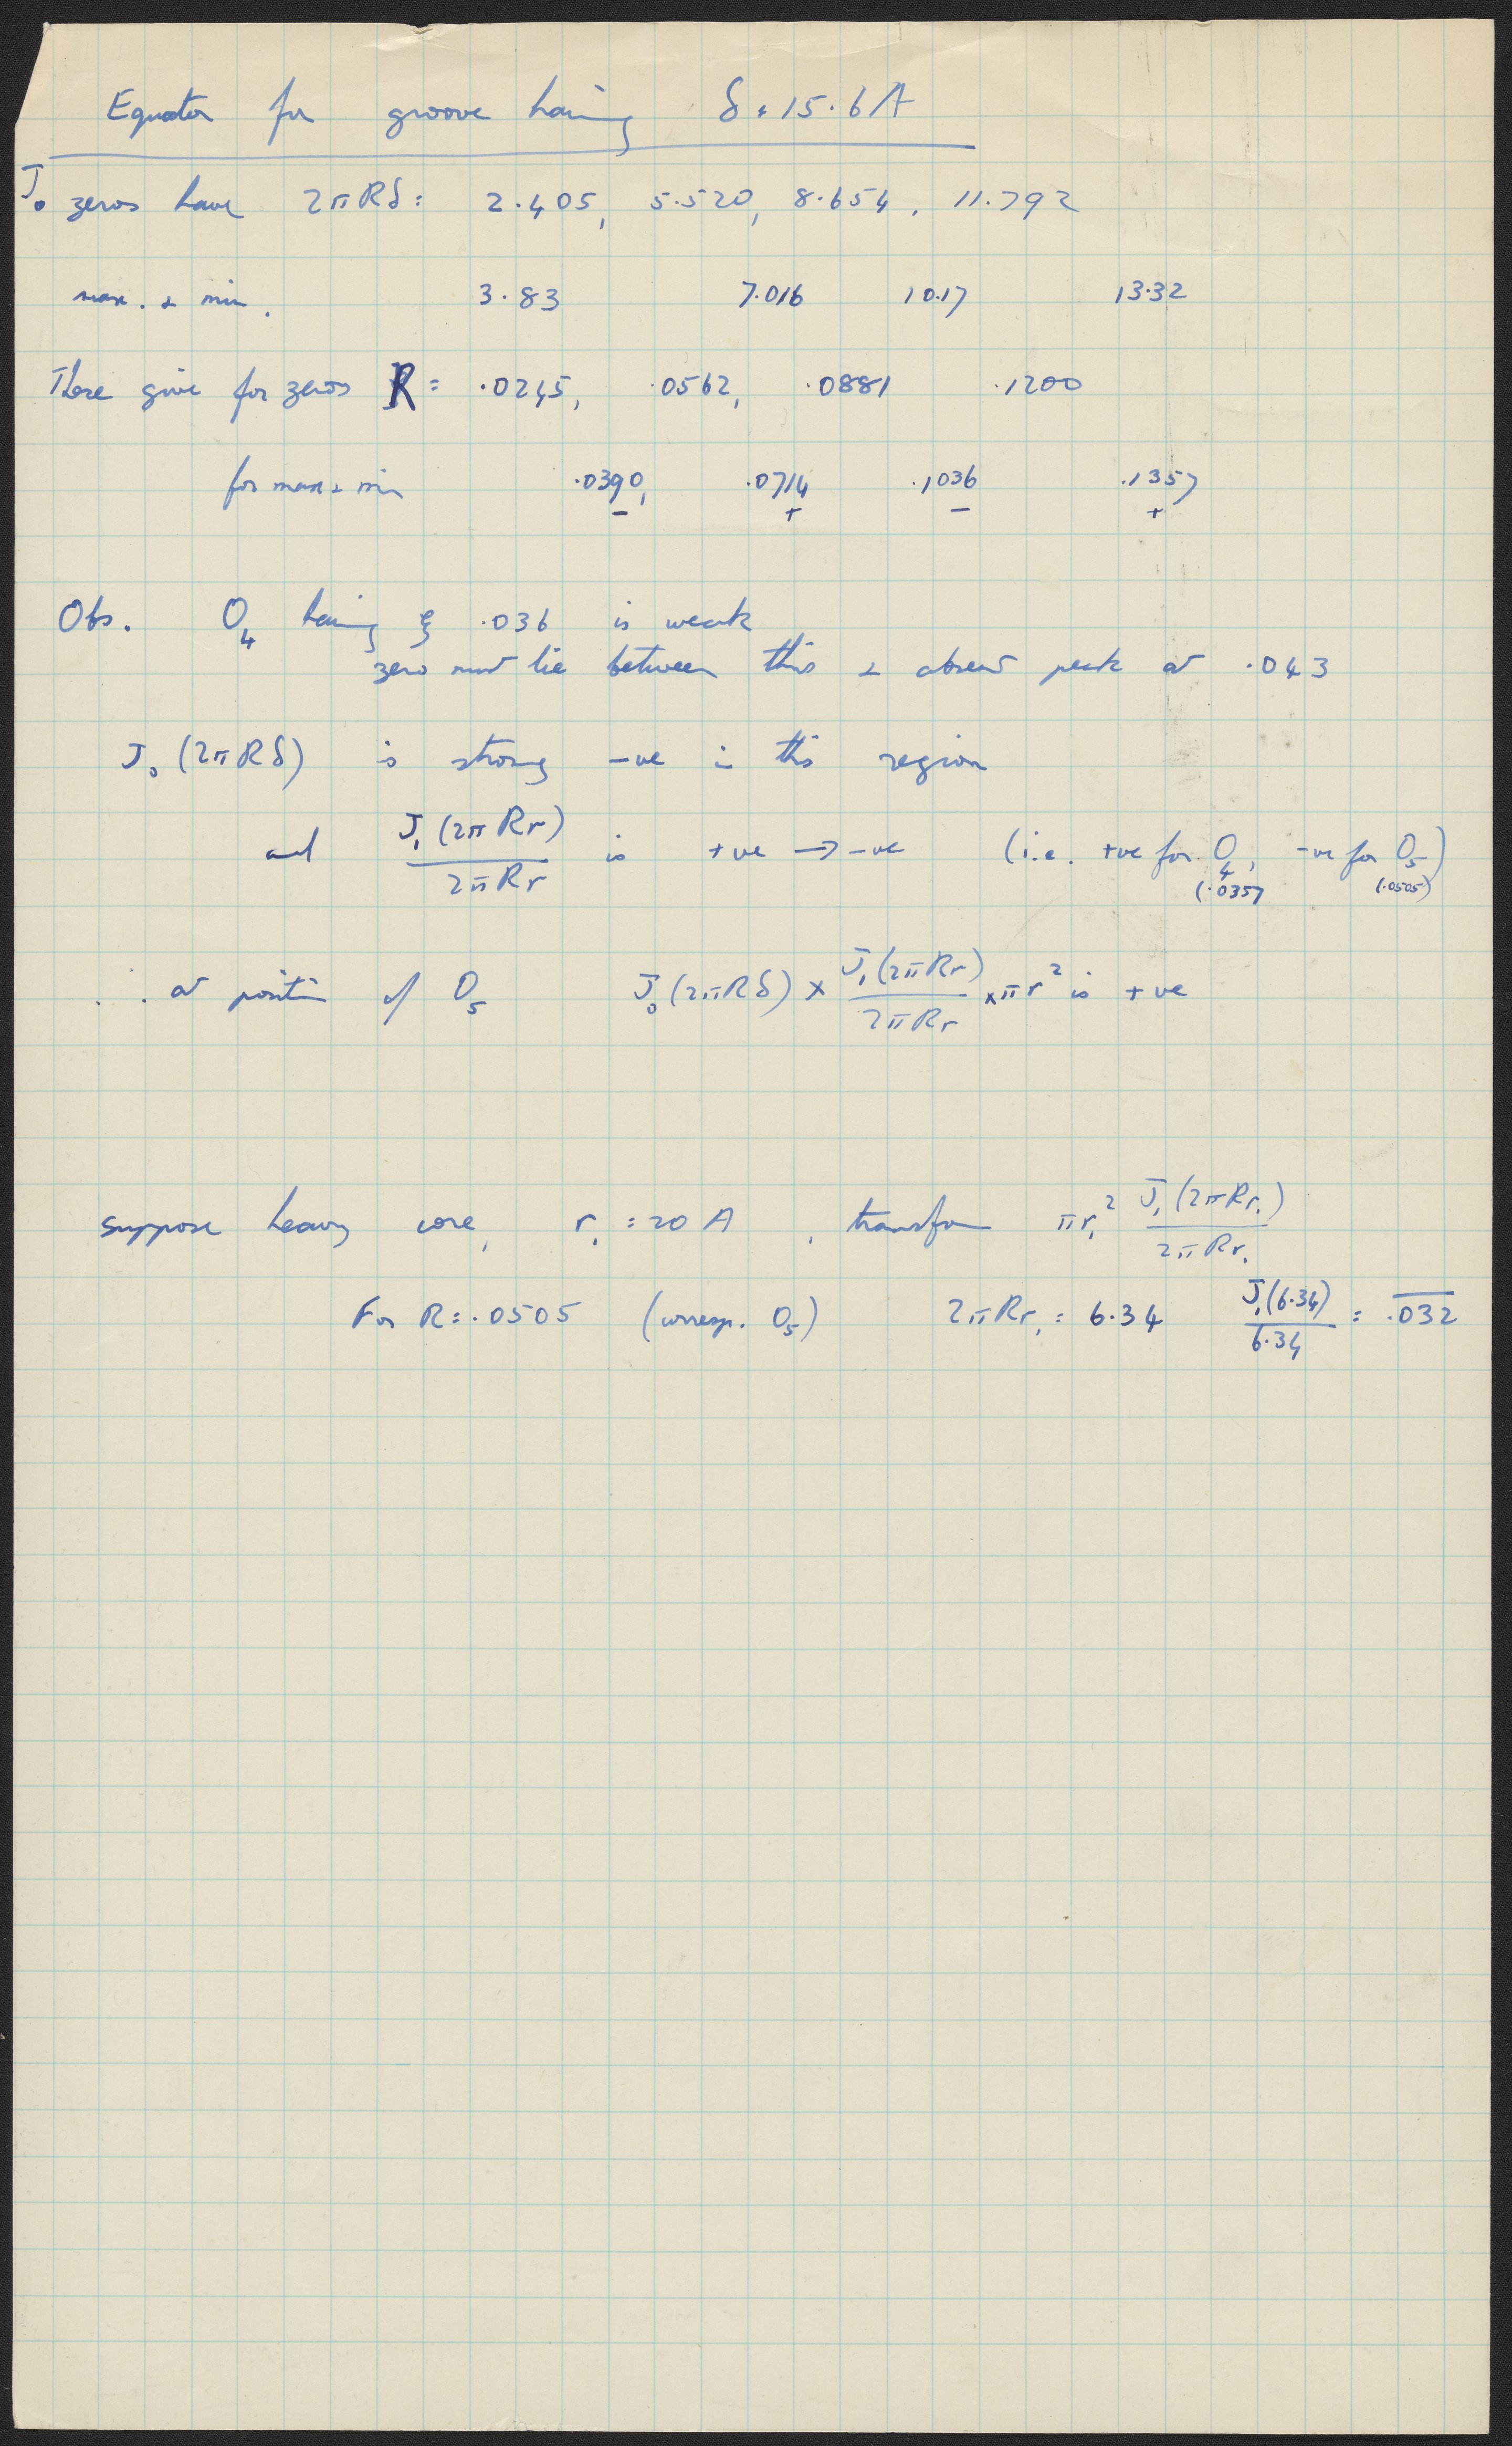 Equator for groove having δ = 15.6 A
J₀ zeros have 2πRδ = 2.405, 5.520, 8.654, 11.792
max. & min. 3.83 7.016 10.17 13.32
These give for zeros R = .0245, .0562, .0881 .1200
for max & min .0390, .0714 .1036 .1357
− + − +
Obs. O₄ having ξ .036 is weak
zero must lie between this & absent peak at .043
J₀ (2πRδ) is strong −ve in this region
and J₁(2πRr) / 2πRr is +ve → −ve (i.e. +ve for O₄, −ve for O₅)
(.0357 (.0505)
∴ at position of O₅ J₀(2πRδ) × J₁(2πRr) / 2πRr × πr² is +ve
Suppose heavy core, r₁ = 20 A, transform πr₁² J₁(2πRr₁) / 2πRr₁
For R = .0505 (corresp. O₅) 2πRr₁ = 6.34 J₁(6.34) / 6.34 = .0̅3̅2̅